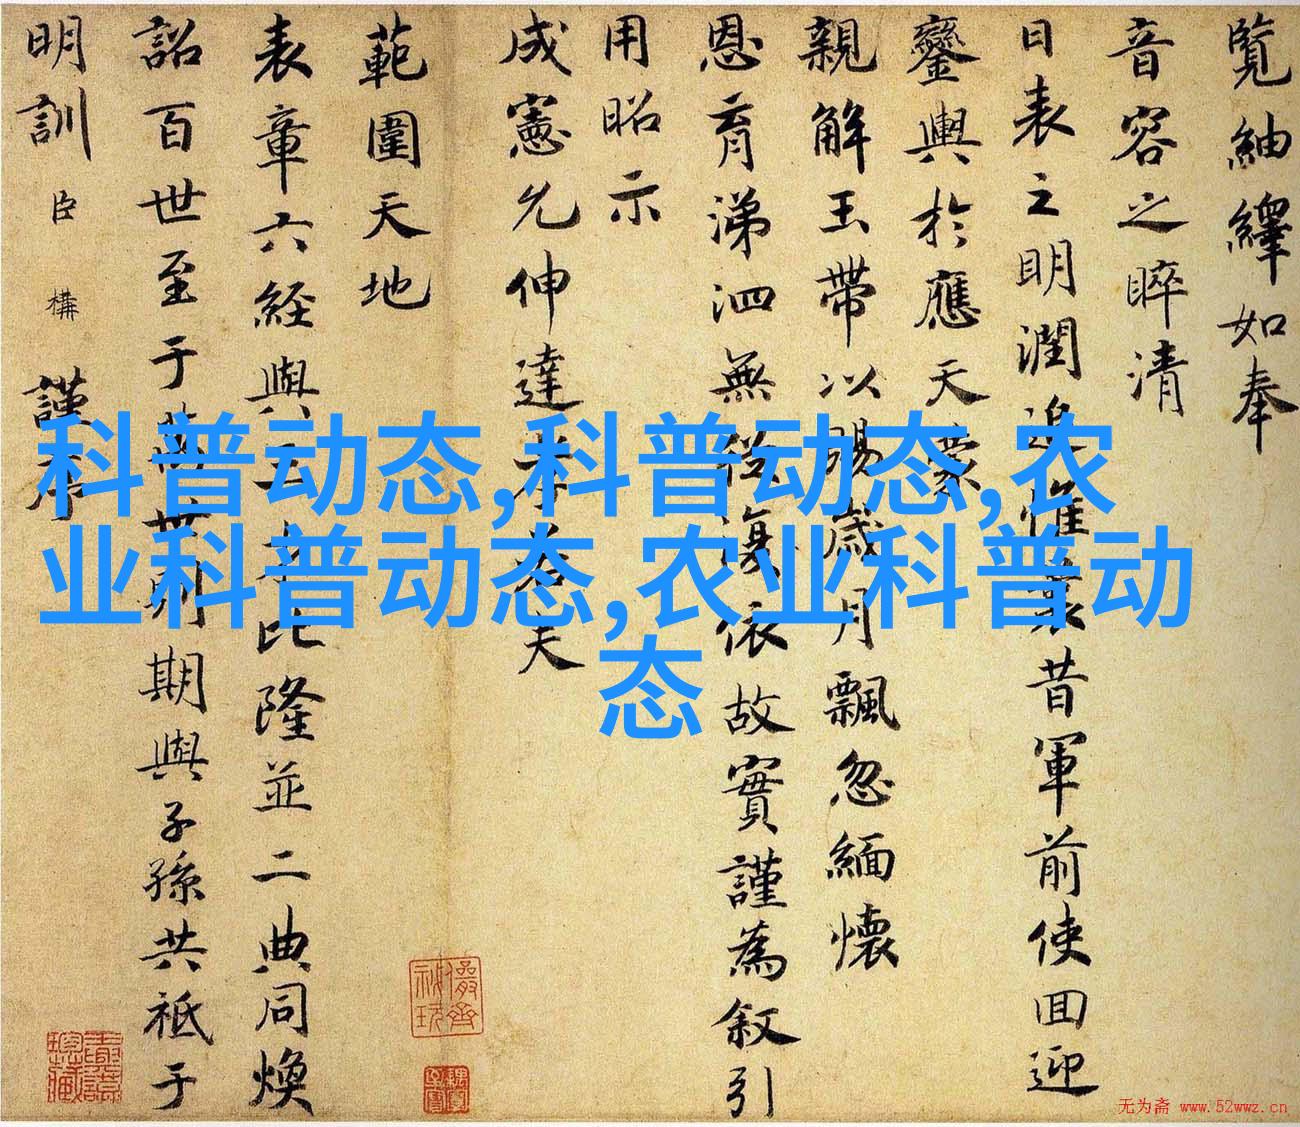 覽紬繹如奉
音容之晬清
日表之明潤追惟曩昔軍前使回迎
鑾輿於應天蒙
親解玉帶以賜歲月飄忽緬懷
恩育涕泗無從復依故實謹為叙引
用昭示
成憲允伸達孝若夫
範圍天地
表章六經與
比隆並二典同煥
詔百世至于萬世則期與子孫共祗于
明訓臣構謹序
科普动态,科普动态,农
业科普动态,农业科普动
态
无为斋 www.52wwz.cn